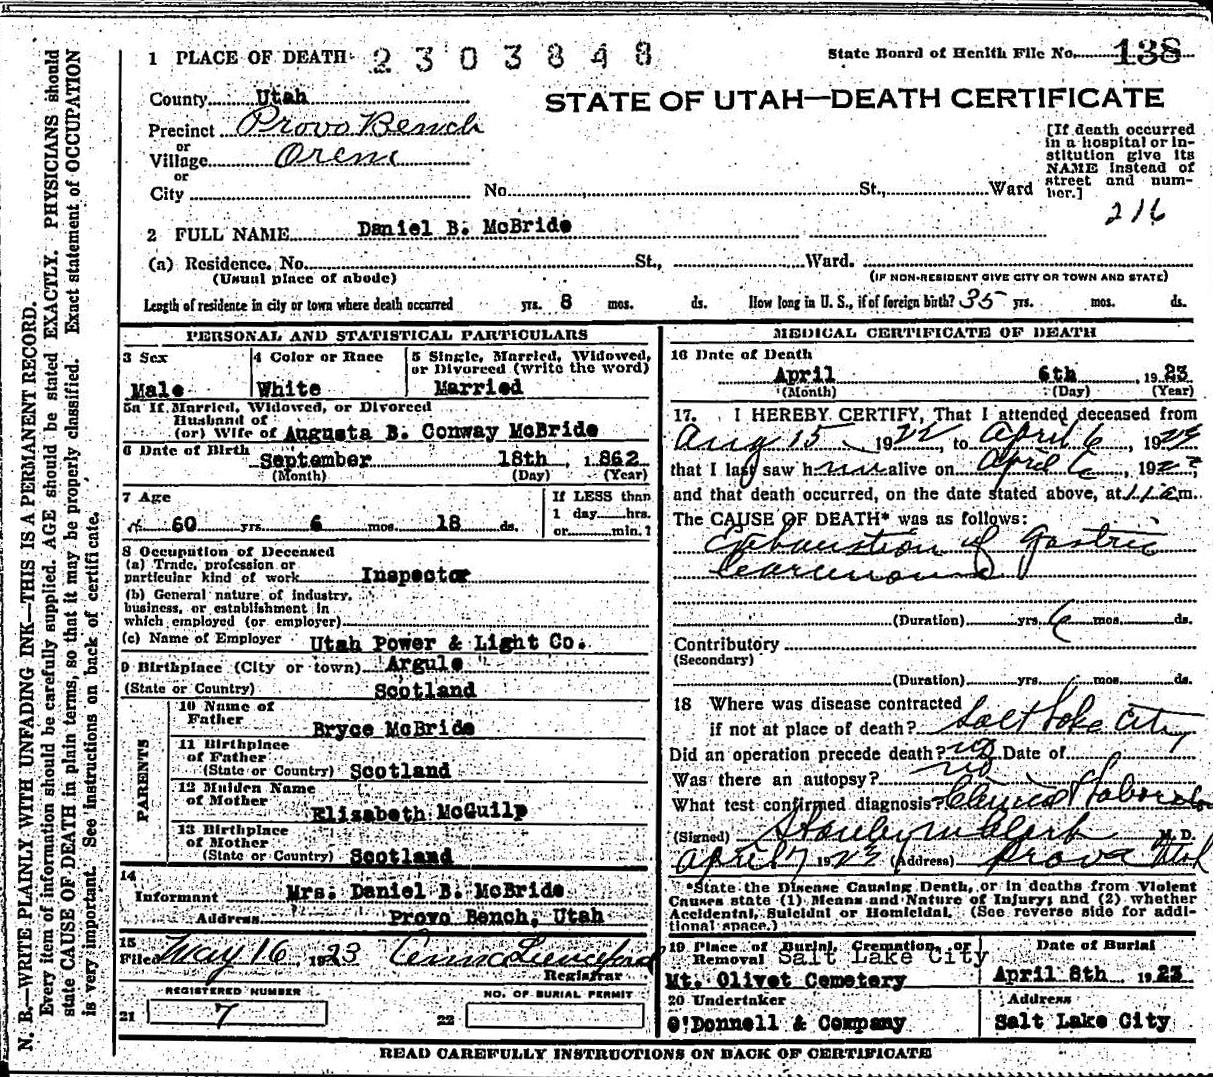 1 PLACE OF DEATH 2303848
State Board of Health File No. 138
County Utah
STATE OF UTAH—DEATH CERTIFICATE
Precinct Provo Bench
or
Village Orem
or
City No. St., Ward
[If death occurred
in a hospital or in-
stitution give its
NAME instead of
street and num-
ber.]
216
2 FULL NAME Daniel B. McBride
(a) Residence. No. St., Ward.
(Usual place of abode)
(IF NON-RESIDENT GIVE CITY OR TOWN AND STATE)
Length of residence in city or town where death occurred yrs. 8 mos. ds. How long in U. S., if of foreign birth? 35 yrs. mos. ds.
PERSONAL AND STATISTICAL PARTICULARS
3 Sex
Male
4 Color or Race
White
5 Single, Married, Widowed,
or Divorced (write the word)
Married
5a If Married, Widowed, or Divorced
Husband of
(or) Wife of Augusta B. Conway McBride
6 Date of Birth
September 18th, 1862
(Month) (Day) (Year)
7 Age
60 yrs. 6 mos. 18 ds.
If LESS than
1 day hrs.
or min.?
8 Occupation of Deceased
(a) Trade, profession or
particular kind of work Inspector
(b) General nature of industry,
business, or establishment in
which employed (or employer)
(c) Name of Employer Utah Power & Light Co.
9 Birthplace (City or town) Argule
(State or Country) Scotland
PARENTS
10 Name of
Father
Bryce McBride
11 Birthplace
of Father
(State or Country) Scotland
12 Maiden Name
of Mother
Elizabeth McGuilp
13 Birthplace
of Mother
(State or Country) Scotland
14
Informant Mrs. Daniel B. McBride
Address Provo Bench, Utah
15
Filed May 16 1923
Registrar
REGISTERED NUMBER
21 7
NO. OF BURIAL PERMIT
22
MEDICAL CERTIFICATE OF DEATH
16 Date of Death
April 6th, 1923
(Month) (Day) (Year)
17. I HEREBY CERTIFY, That I attended deceased from
Aug 15 1922 to April 6, 1923
that I last saw him alive on April 6, 1923
and that death occurred, on the date stated above, at m.
The CAUSE OF DEATH* was as follows:
Exhaustion of Gastric
Carcinoma
(Duration) yrs. 6 mos. ds.
Contributory
(Secondary)
(Duration) yrs. mos. ds.
18 Where was disease contracted
if not at place of death? Salt Lake City
Did an operation precede death? no Date of
Was there an autopsy? no
What test confirmed diagnosis? Clinical &
(Signed) Stanley M Clark M. D.
April 7 1923 (Address) Provo Utah
*State the Disease Causing Death, or in deaths from Violent
Causes state (1) Means and Nature of Injury; and (2) whether
Accidental, Suicidal or Homicidal. (See reverse side for addi-
tional space.)
19 Place of Burial, Cremation, or
Removal Salt Lake City
Mt. Olivet Cemetery
Date of Burial
April 8th 1923
20 Undertaker
O'Donnell & Company
Address
Salt Lake City
READ CAREFULLY INSTRUCTIONS ON BACK OF CERTIFICATE
N. B.—WRITE PLAINLY WITH UNFADING INK—THIS IS A PERMANENT RECORD.
Every item of information should be carefully supplied. AGE should be stated EXACTLY. PHYSICIANS should
state CAUSE OF DEATH in plain terms, so that it may be properly classified. Exact statement of OCCUPATION
is very important. See instructions on back of certificate.